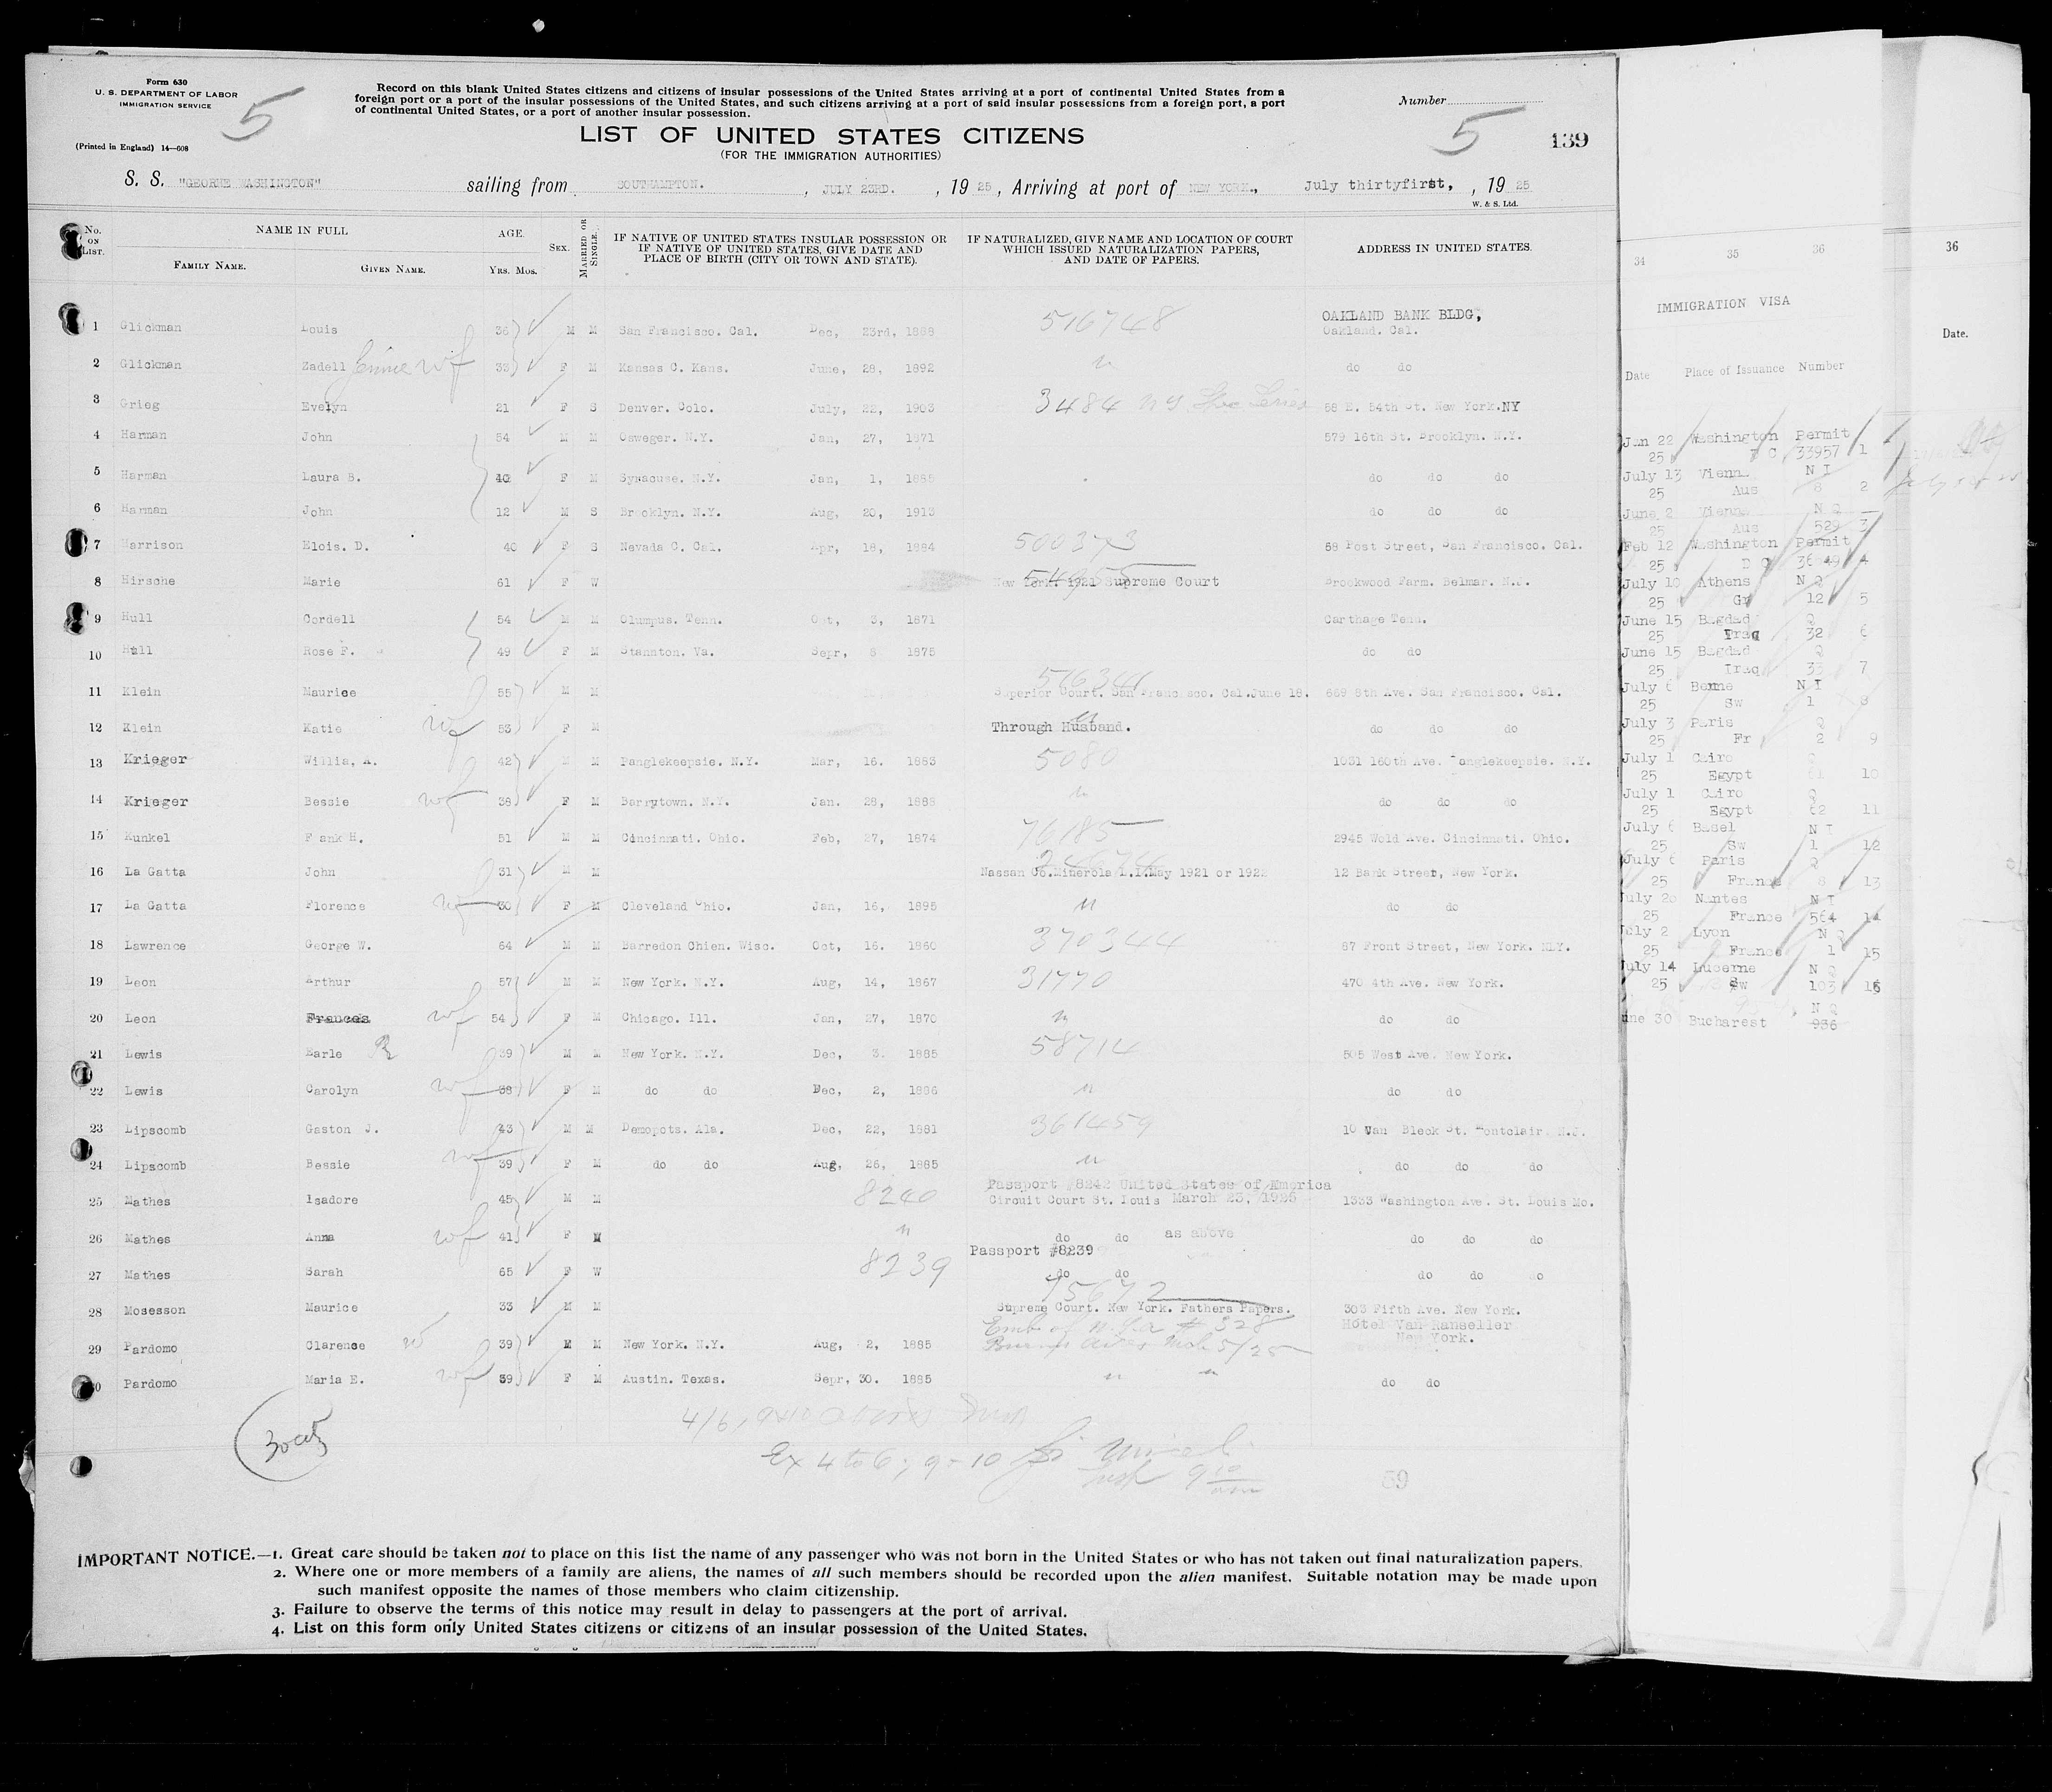 Form 630
U. S. DEPARTMENT OF LABOR
IMMIGRATION SERVICE
(Printed in England) 14—608
5
Record on this blank United States citizens and citizens of insular possessions of the United States arriving at a port of continental United States from a
foreign port or a port of the insular possessions of the United States, and such citizens arriving at a port of said insular possessions from a foreign port, a port
of continental United States, or a port of another insular possession.
Number
5 139
LIST OF UNITED STATES CITIZENS
(FOR THE IMMIGRATION AUTHORITIES)
S. S. "GEORGE WASHINGTON" sailing from SOUTHAMPTON. , JULY 23RD. , 19 25, Arriving at port of NEW YORK., July thirtyfirst, , 19 25
W. & S. Ltd.
No. ON LIST. NAME IN FULL AGE. SEX. MARRIED OR SINGLE. IF NATIVE OF UNITED STATES INSULAR POSSESSION OR IF NATIVE OF UNITED STATES, GIVE DATE AND PLACE OF BIRTH (CITY OR TOWN AND STATE). IF NATURALIZED, GIVE NAME AND LOCATION OF COURT WHICH ISSUED NATURALIZATION PAPERS, AND DATE OF PAPERS. ADDRESS IN UNITED STATES.
FAMILY NAME. GIVEN NAME. YRS. MOS.
1 Glickman Louis 36 M M San Francisco. Cal. Dec, 23rd, 1888 516748 OAKLAND BANK BLDG, Oakland. Cal.
2 Glickman Zadell Jennie wf 33 F M Kansas C. Kans. June, 28, 1892 " do do
3 Grieg Evelyn 21 F S Denver. Colo. July, 22, 1903 3484 NY Spec Series 58 E. 54th St. New York.NY
4 Harman John 54 M M Osweger. N.Y. Jan, 27, 1871 579 16th St. Brooklyn. N.Y.
5 Harman Laura B. 40 F M Synacuse. N.Y. Jan, 1, 1885 do do do
6 Harman John 12 M S Brooklyn. N.Y. Aug, 20, 1913 do do do
7 Harrison Elois. D. 40 F S Nevada C. Cal. Apr, 18, 1884 500373 58 Post Street, San Francisco. Cal.
8 Hirsche Marie 61 F W New York. 1921 Supreme Court Brookwood Farm. Belmar. N.J.
9 Hull Cordell 54 M M Olumpus. Tenn. Oct, 3, 1871 Carthage Tenn.
10 Hull Rose F. 49 F M Stannton. Va. Sepr, 8 1875 do do
11 Klein Maurice 55 M M 516341 Superior Court. San Francisco. Cal.June 18. 669 8th Ave. San Francisco. Cal.
12 Klein Katie wf 53 F M " Through Husband. do do do
13 Krieger Willis, A. 42 M M Panglekeepsie. N.Y. Mar, 16. 1883 5080 1031 160th Ave. Panglekeepsie. N.Y.
14 Krieger Bessie wf 38 F M Barrytown. N.Y. Jan. 28, 1888 " do do do
15 Kunkel Frank H. 51 M M Cincinnati. Ohio. Feb, 27, 1874 76185 2945 Wold Ave. Cincinnati. Ohio.
16 La Gatta John 31 M M Nassan Co.Minerola L.I.May 1921 or 1922 12 Bank Street, New York.
17 La Gatta Florence wf 30 F M Cleveland Ohio. Jan, 16, 1895 " do do
18 Lawrence George W. 64 M M Barredon Chien. Wisc. Oct, 16. 1860 370344 87 Front Street, New York. NLY.
19 Leon Arthur 57 M M New York. N.Y. Aug, 14, 1867 31770 470 4th Ave. New York.
20 Leon Frances wf 54 F M Chicago. Ill. Jan, 27, 1870 " do do
21 Lewis Earle R 39 M M New York. N.Y. Dec, 3. 1885 58714 505 West Ave. New York.
22 Lewis Carolyn wf 38 F M do do Dec, 2, 1886 " do do
23 Lipscomb Gaston J. 43 M M Demopots. Ala. Dec, 22, 1881 361459 10 Van Bleck St. Montclair. N.J.
24 Lipscomb Bessie wf 39 F M do do Aug, 26, 1885 " do do do
25 Mathes Isadore 45 M M 8240 Passport #8242 United States of Emerica Circuit Court St. Louis March 23, 1926 1333 Washington Ave. St. Louis Mo.
26 Mathes Anna wf 41 F M " do do as above do do do
27 Mathes Sarah 65 F W 8239 Passport #8239 do do do do do
28 Mosesson Maurice 33 M M 75672 Supreme Court. New York. Fathers Papers. 303 Fifth Ave. New York.
29 Pardomo Clarence w 39 M M New York. N.Y. Aug, 2, 1885 Emb of U.S.A # 328 Buenos Aires Mch 5/25 Hotel Van Ranseller New York.
30 Pardomo Maria E. wf 39 F M Austin. Texas. Sepr, 30. 1885 " " do do
30 cits
Ex 4 to 6; 9-10
59
IMPORTANT NOTICE.—1. Great care should be taken not to place on this list the name of any passenger who was not born in the United States or who has not taken out final naturalization papers.
2. Where one or more members of a family are aliens, the names of all such members should be recorded upon the alien manifest. Suitable notation may be made upon
such manifest opposite the names of those members who claim citizenship.
3. Failure to observe the terms of this notice may result in delay to passengers at the port of arrival.
4. List on this form only United States citizens or citizens of an insular possession of the United States.
34 35 36
IMMIGRATION VISA
Date Place of Issuance Number
Jan 22 Washington Permit
25 D C 33957 1
July 13 Vienna N I
25 Aus 8 2
June 2 Vienna N Q
25 Aus 529 3
Feb 12 Washington Permit
25 D C 4
July 10 Athens N Q
25 Gr 12 5
June 15 Bagdad Q
25 Iraq 32 6
June 15 Bagdad Q
25 Iraq 33 7
July 6 Berne N I
25 Sw 1 8
July 3 Paris Q
25 Fr 2 9
July 1 Cairo Q
25 Egypt 61 10
July 1 Cairo Q
25 Egypt 62 11
July 6 Basel N I
25 Sw 1 12
July 6 Paris Q
25 France 8 13
July 20 Nantes N I
25 France 564 14
July 2 Lyon N Q
25 France 1 15
July 14 Lucerne N Q
25 Sw 103 16
N Q
une 30 Bucharest 936
36
Date.